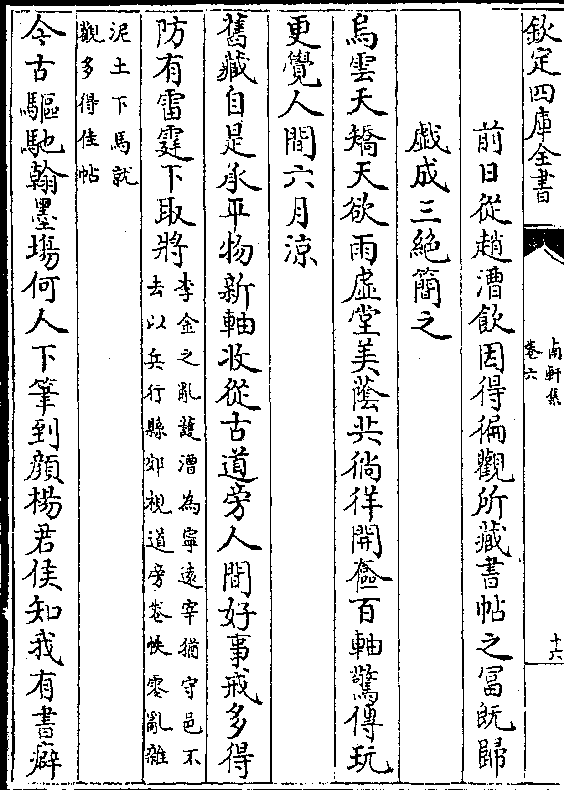 欽定四庫全書
南軒集
卷六
十六
前日從趙漕飲因得徧觀所藏書帖之富既歸
戯成三絶簡之
烏雲天矯天欲雨虛堂美蔭共徜徉開奩百軸驚傳玩
更覺人間六月涼
舊藏自是承平物新軸收從古道旁人間好事戒多得
防有雷霆下取將
李金之亂護漕為寧遠宰猶守邑不
去以兵行縣郊視道旁卷帙零亂雜
泥土下馬就
觀多得佳帖
今古驅馳翰墨塲何人下筆到顔楊君侯知我有書癖